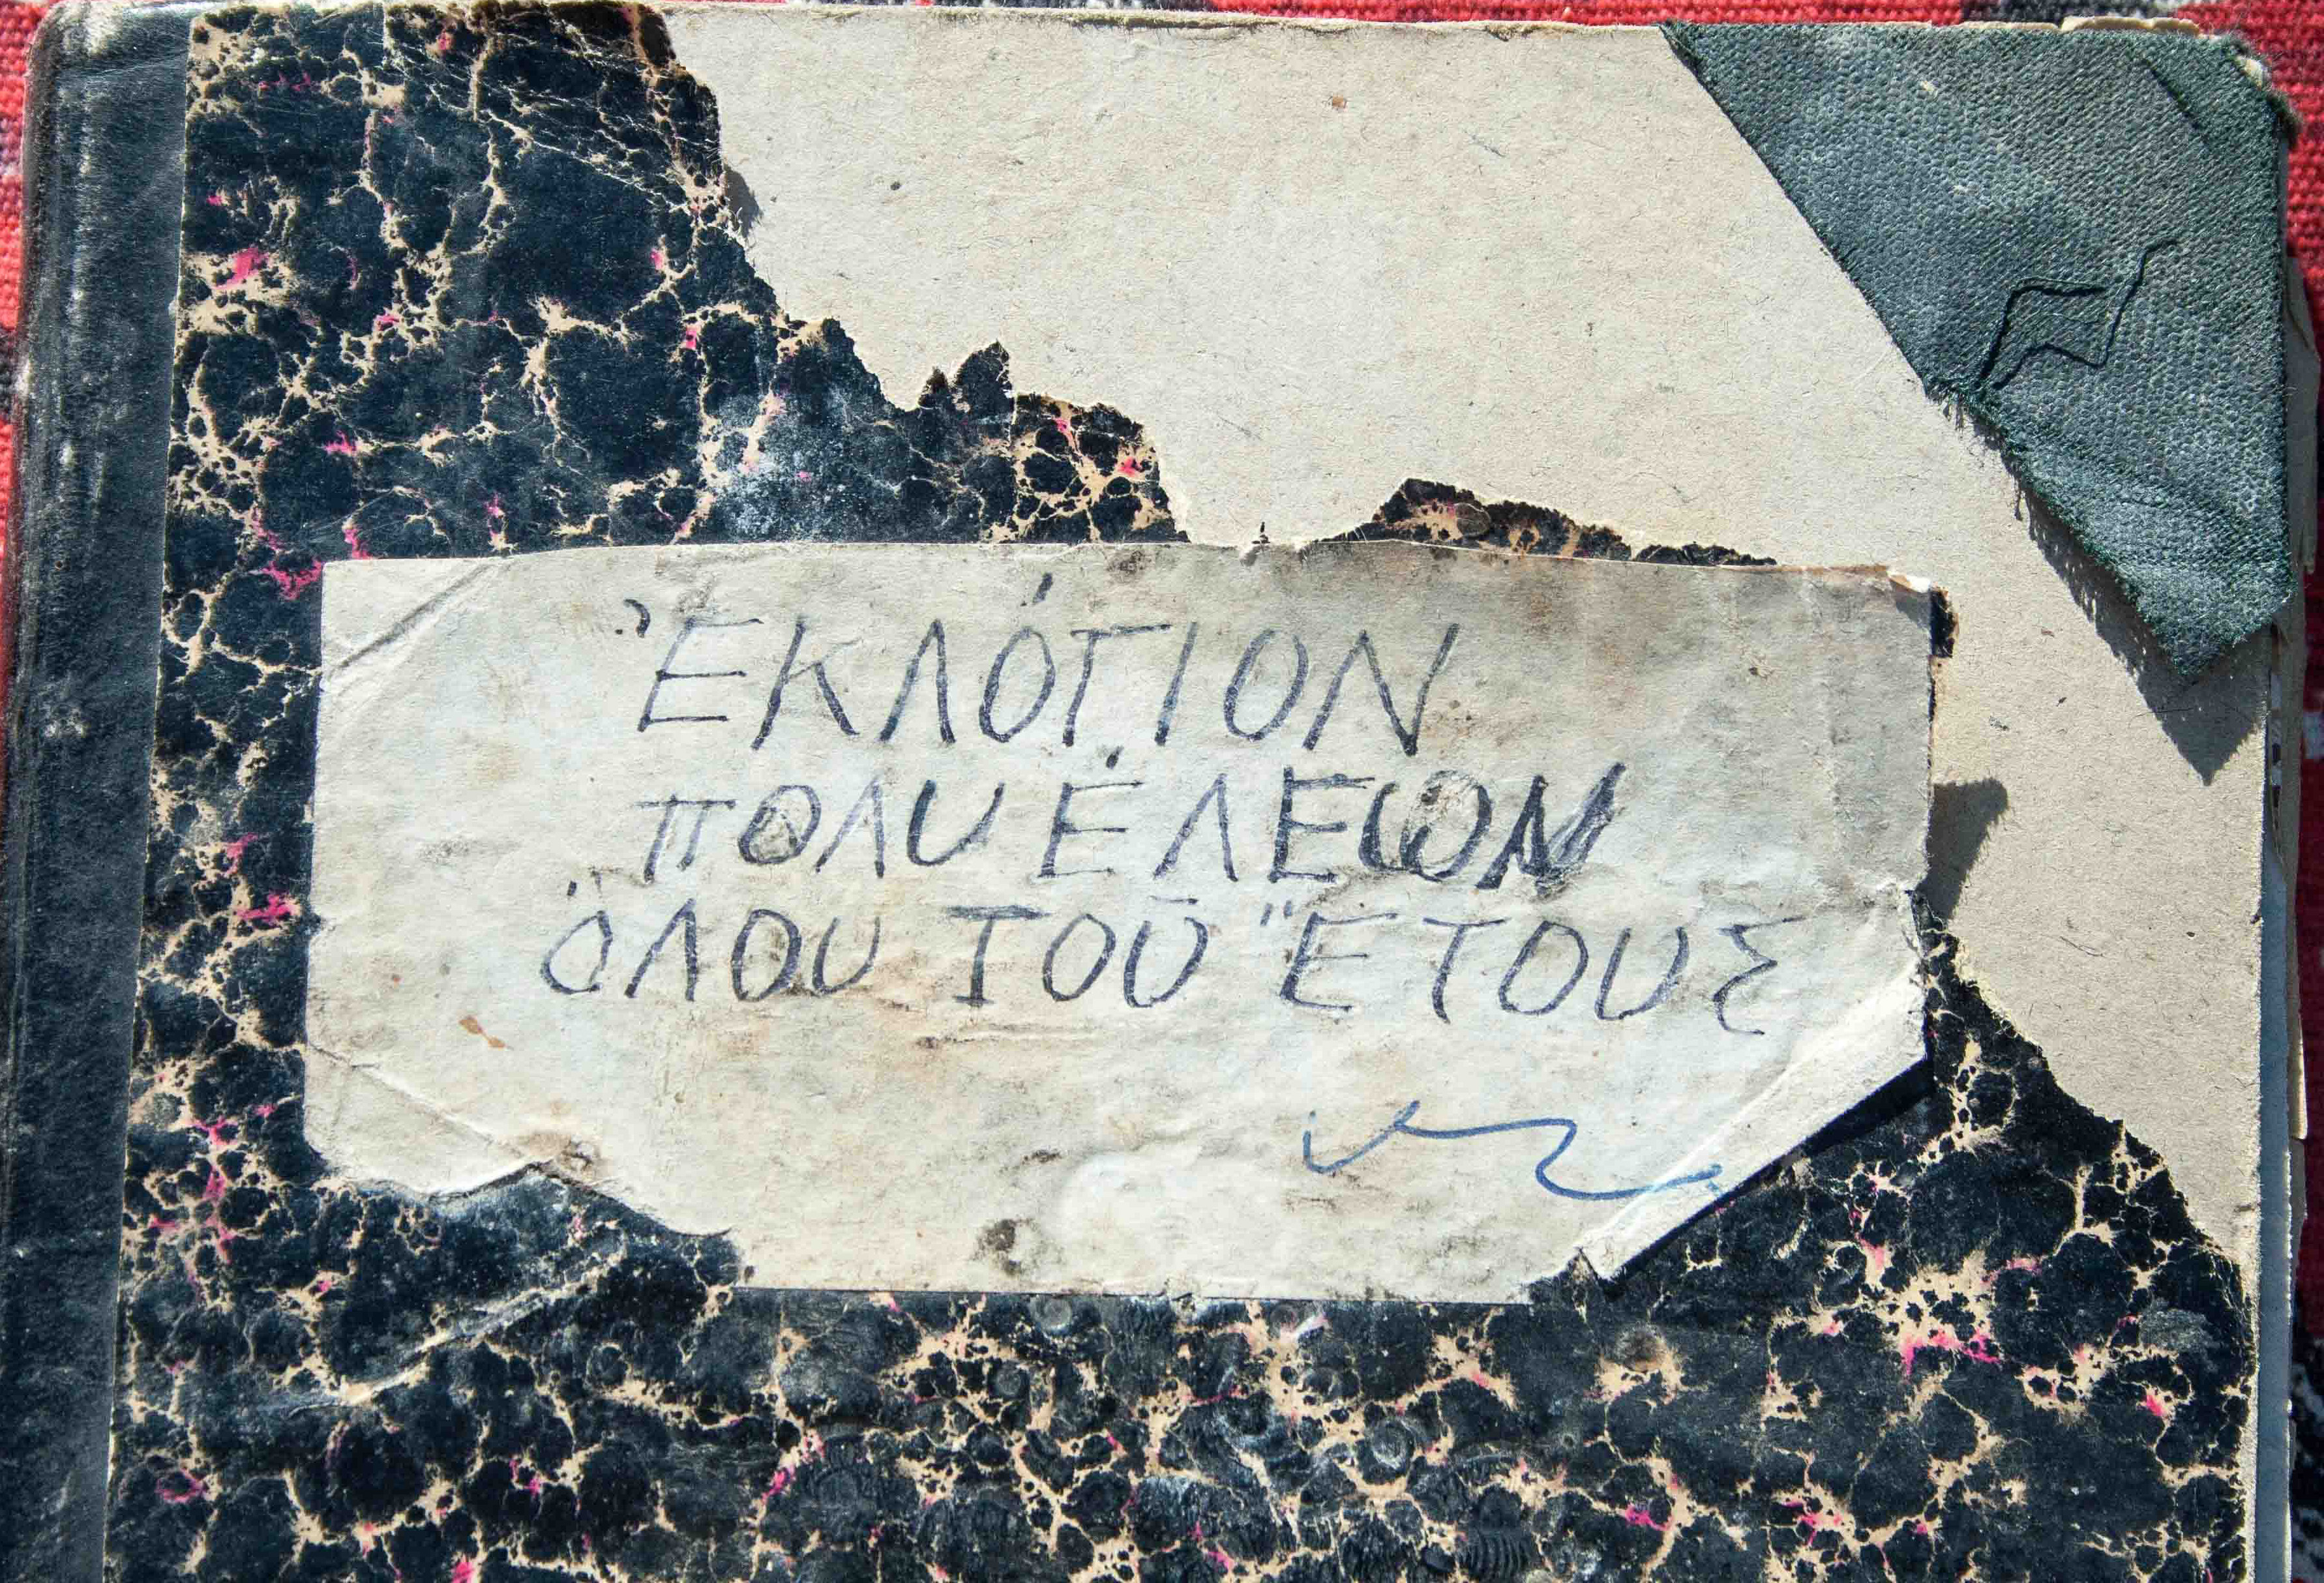 Ἐκλόγιον
πολυέλεων
ὅλου τοῦ ἔτους